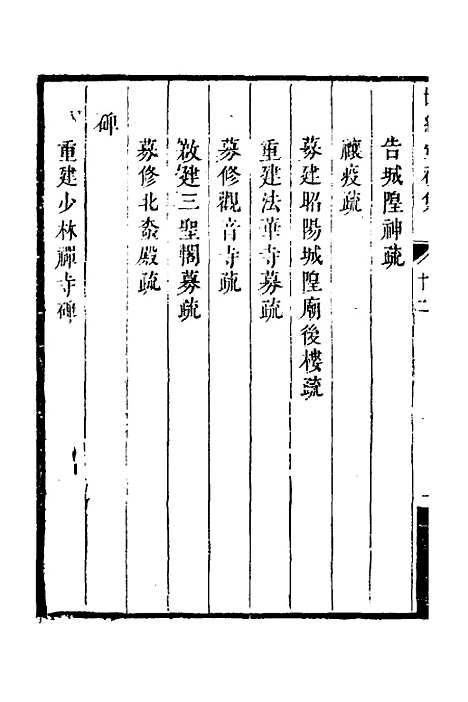 告城隍神疏
禳疫疏
募建昭陽城隍廟後樓疏
重建法華寺募疏
募修觀音寺疏
啟建三聖閣募疏
募修北泰殿疏
碑
重建少林禪寺碑